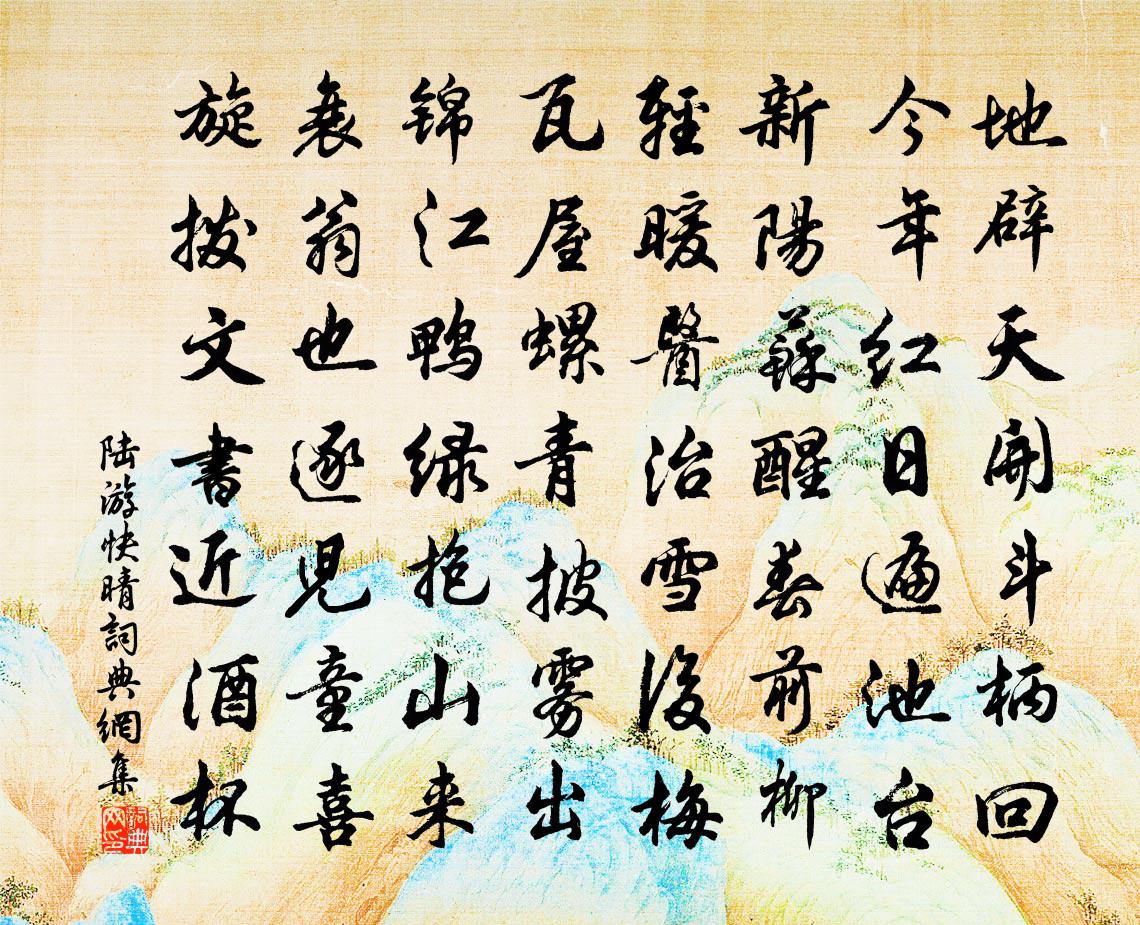 地辟天開斗柄回
今年紅日遍池台
新陽蘇醒春前柳
輕暖醫治雪後梅
瓦屋螺青披雾出
锦江鸭绿抱山来
衰翁也逐児童喜
旋拨文書近酒杯
陆游快晴詞典網集
詞典网印